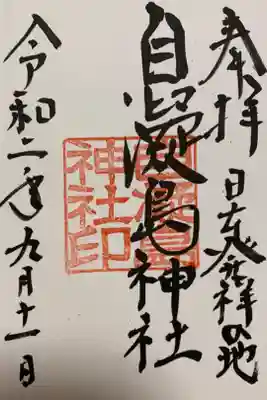 奉拝
日本発祥の地
自凝島神社
自凝島神社印
令和二年九月十一日